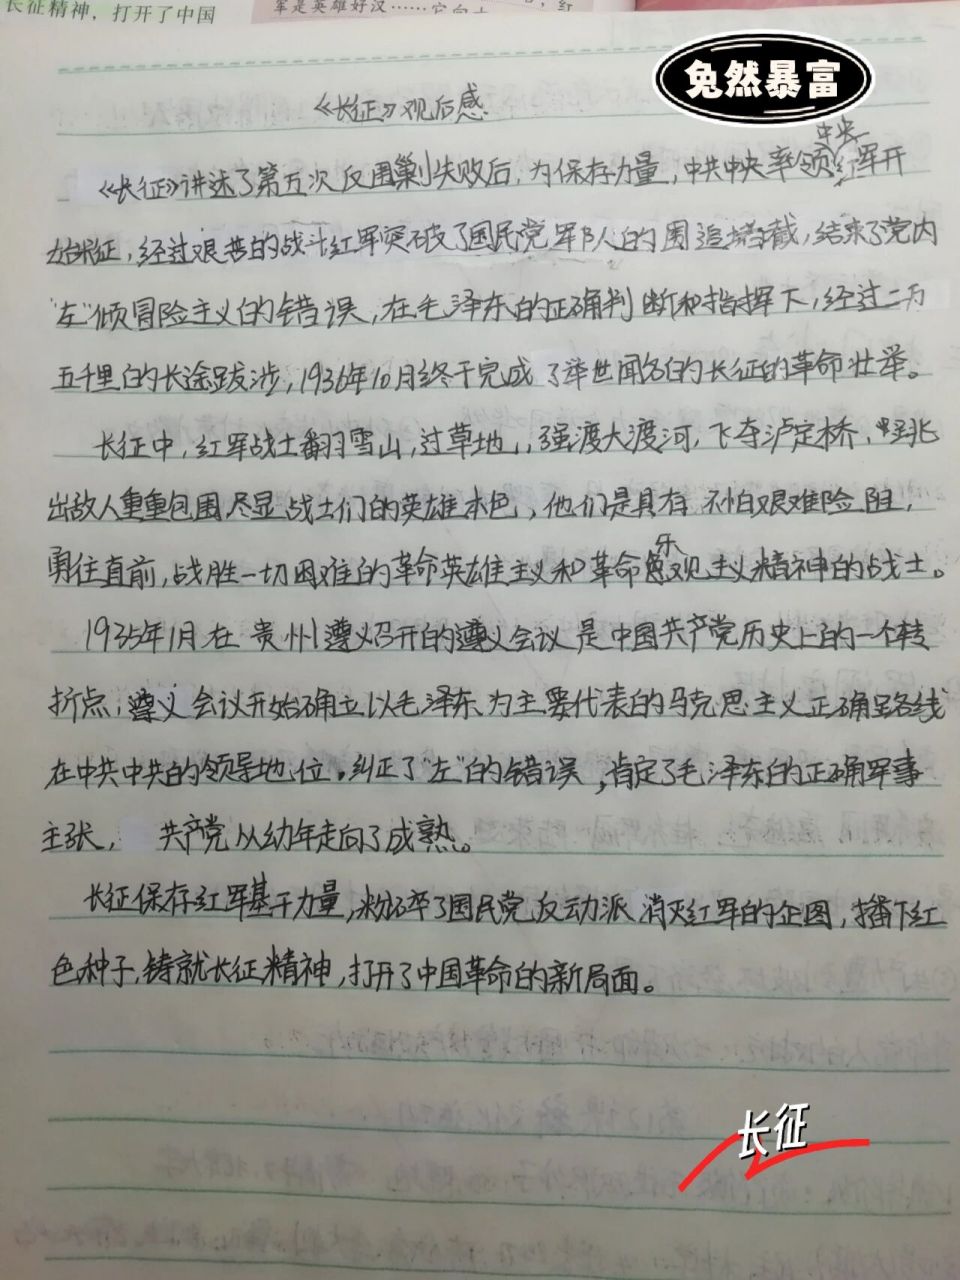 长征精神，打开了中国
军是英雄好汉……它向十
兔然暴富
《长征》观后感
中央
《长征》讲述了第五次反围剿失败后，为保存力量，中共中央率领红军开
始长征，经过艰苦的战斗红军突破了国民党军队人的围追堵截，结束了党内
"左"倾冒险主义的错误，在毛泽东的正确判断和指挥下，经过二万
五千里的长途跋涉，1936年10月终于完成了举世闻名的长征的革命壮举。
长征中，红军战士翻雪山，过草地，强渡大渡河，飞夺泸定桥，跳
出敌人重重包围尽显战士们的英雄本色，他们是具有不怕艰难险阻，
乐
勇往直前，战胜一切困难的革命英雄主义和革命观主义精神的战士。
1935年1月在贵州遵义召开的遵义会议是中国共产党历史上的一个转
折点；遵义会议开始确立以毛泽东为主要代表的马克思主义正确路线
在中共中共的领导地位。纠正了"左"的错误，肯定了毛泽东的正确军事
主张，共产党从幼年走向了成熟。
长征保存红军基干力量，粉碎了国民党反动派消灭红军的企图，播下红
色种子，铸就长征精神，打开了中国革命的新局面。
长征